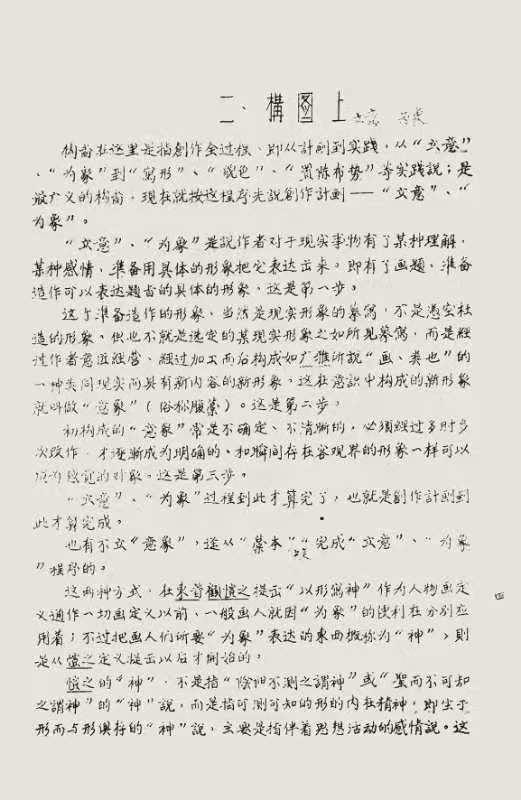 二、構图上 立意 为象
構图在这里是指創作全过程、即从計劃到实践，从“立意”
、“为象”到“寫形”、“貌色”、“置陈布势”等实践説；是
最广义的構图，現在就按这程序先説創作計劃——“立意”、“
为象”。
“立意”、“为象”是説作者对于現实事物有了某种理解，
某种感情，準备用具体的形象把它表达出来。即有了画题、準备
造作可以表达題旨的具体的形象，这是第一步。
这个準备造作的形象，当然是現实形象的摹寫，不是憑空杜
造的形象。但也不就是选定的某現实形象之如所見摹寫，而是經
过作者意匠經营、經过加工而后构成如广雅所説“画、类也”的
一种类同現实而具有新内容的新形象。这在意識中构成的新形象
就叫做“意象”（俗称腹藁）。这是第二步。
初构成的“意象”常是不确定、不清晰的，必須經过多时多
次改作，才逐漸成为明确的、和瞬间存在客观界的形象一样可以
成为感覚的对象。这是第三步。
“立意”、“为象”过程到此才算完了，也就是創作計劃到
此才算完成。
也有不立“意象”，逕从“藁本”“完成“立意”、“为象
”程序的。
这两种方式，在東晋顧愷之提出“以形寫神”作为人物画定
义通作一切画定义以前、一般画人就因“为象”的便利在分别应
用着；不过把画人们所要“为象”表达的東西概称为“神”，則
是从愷之定义提出以后才開始的。
愷之的“神”，不是指“陰阳不測之謂神”或“聖而不可知
之謂神”的“神”説，而是指可測可知的形的内在精神，即生于
形而与形俱存的“神”説，主要是指伴着思想活动的感情説。这
四